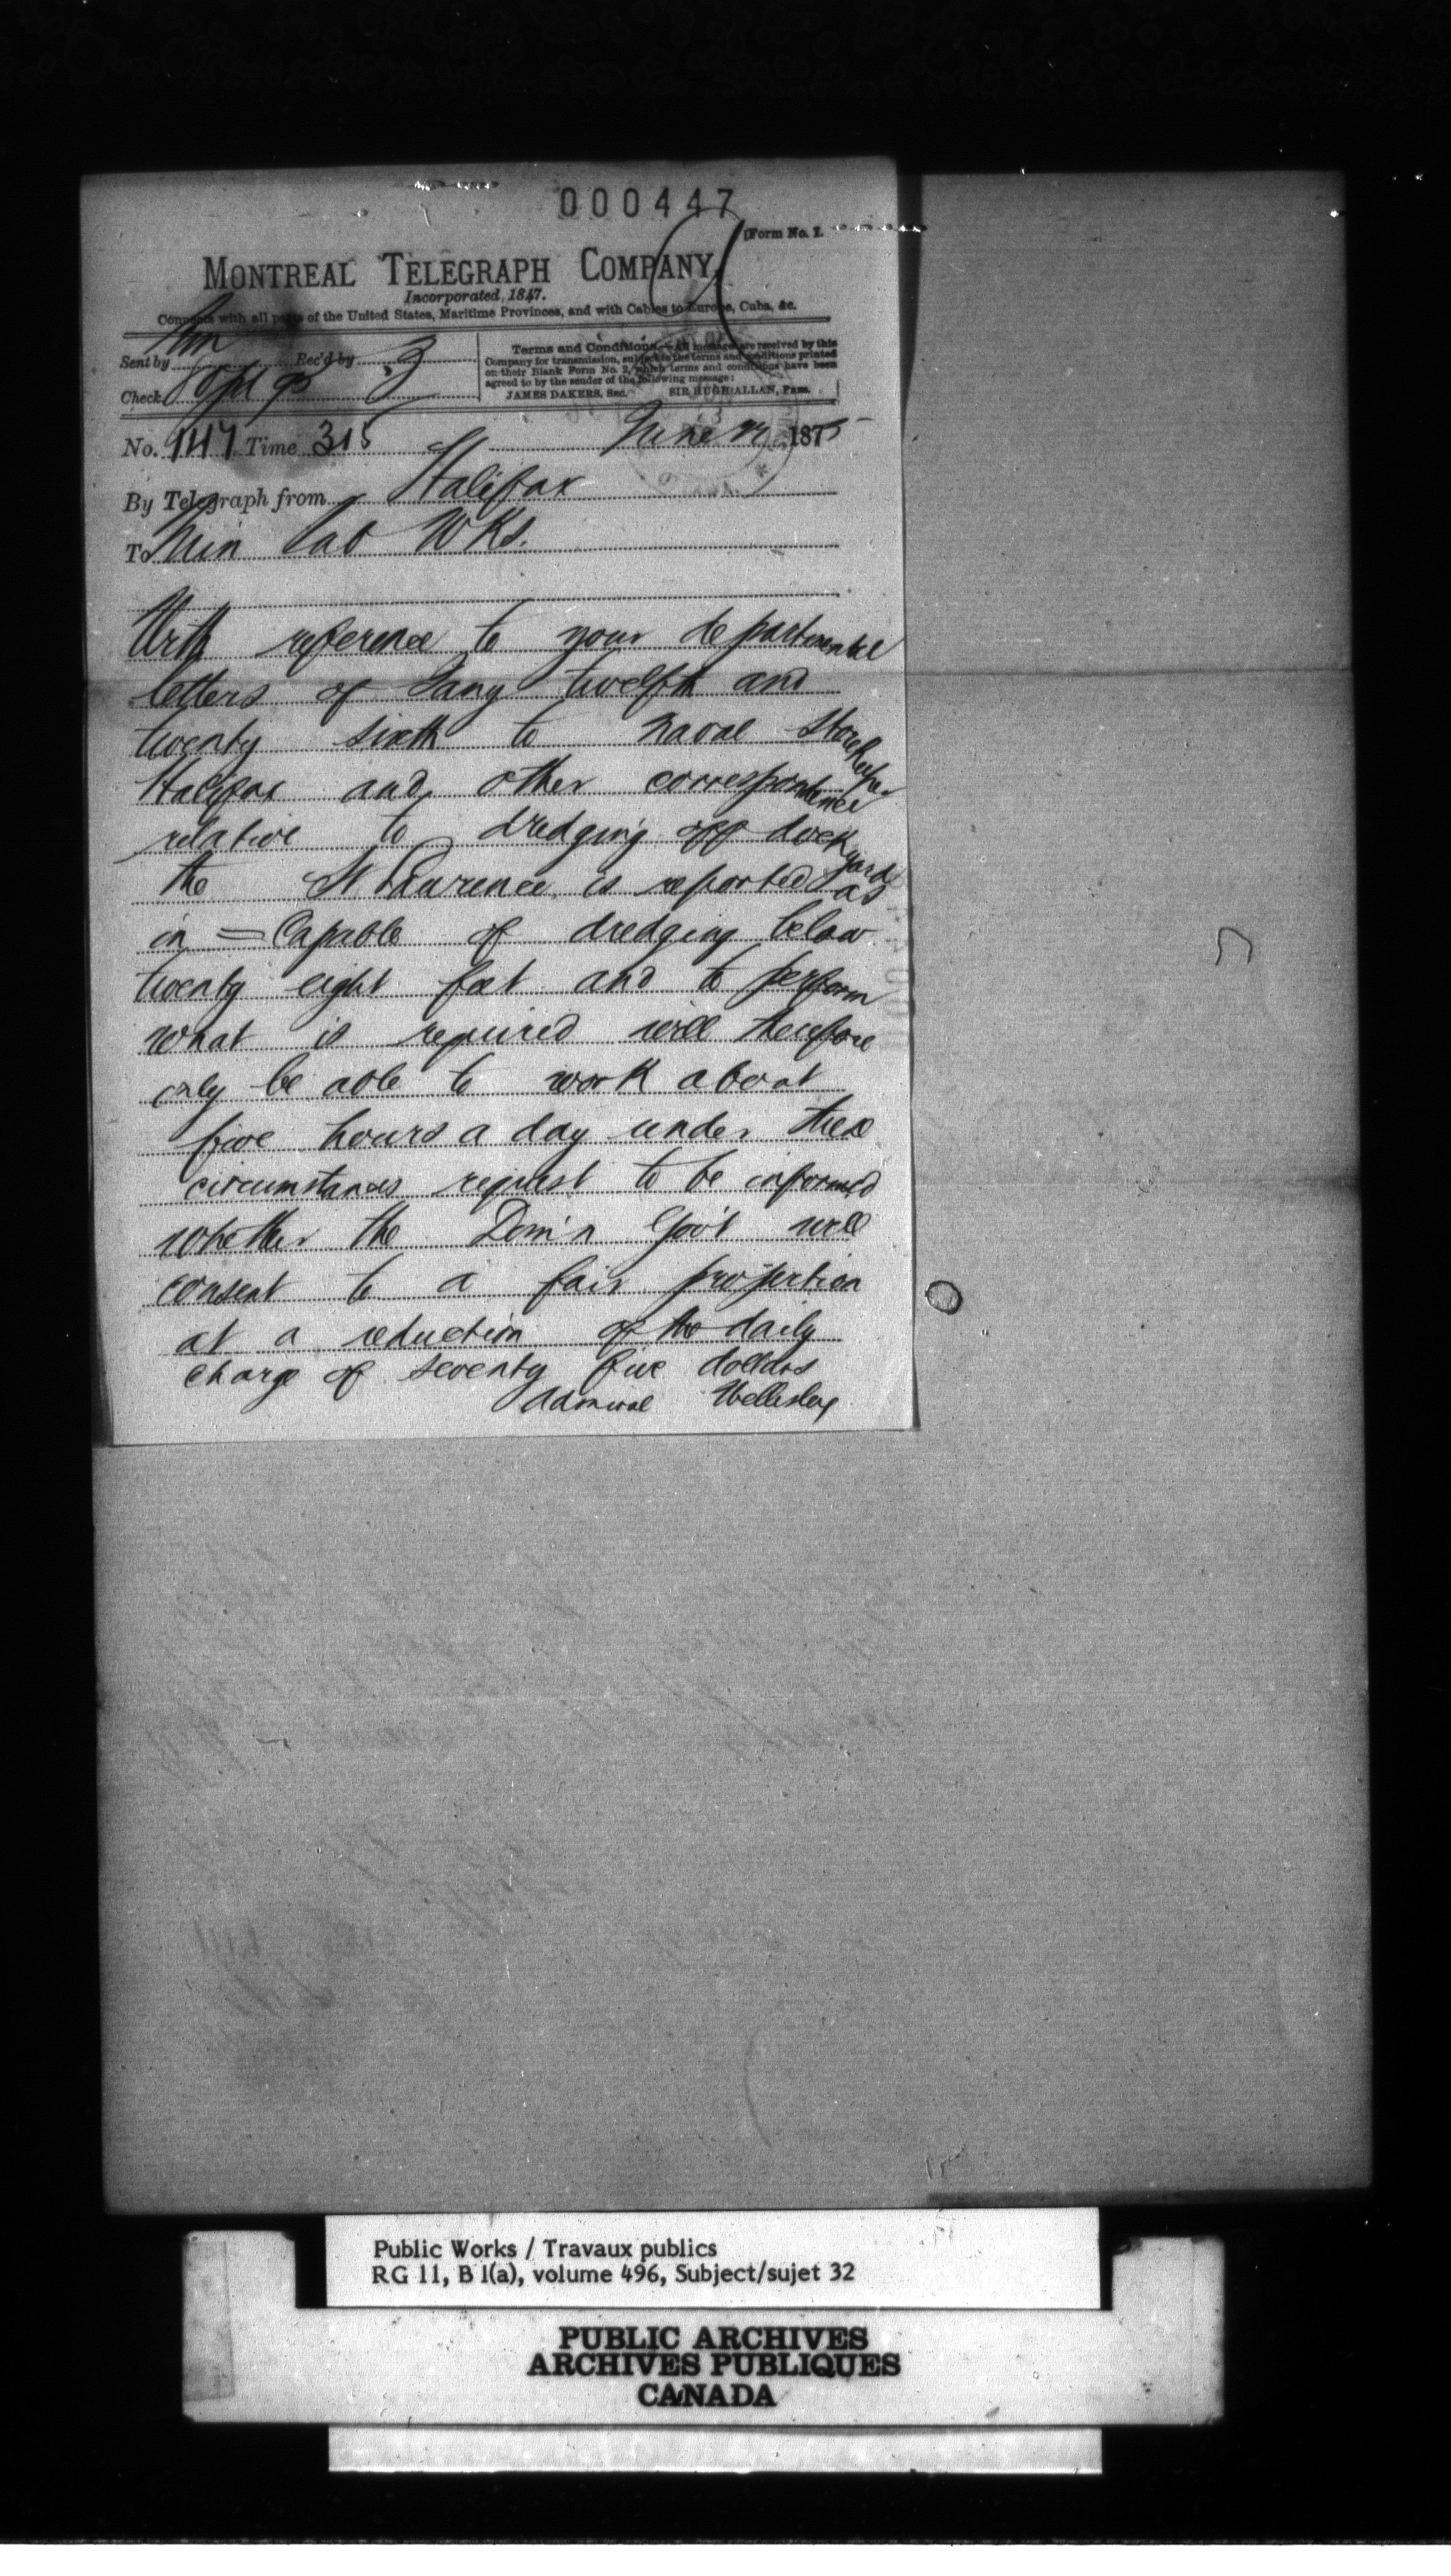 000447
[Form No. 1.
MONTREAL TELEGRAPH COMPANY,
Incorporated, 1847.
Connects with all parts of the United States, Maritime Provinces, and with Cables to Europe, Cuba, &c.
Sent by Rec'd by
Check
Terms and Conditions.—All messages are received by this
Company for transmission, subject to the terms and conditions printed
on their Blank Form No. 2, which terms and conditions have been
agreed to by the sender of the following message:
JAMES DAKERS, Sec. SIR HUGH ALLAN, Pres.
No. Time 315 June 1875
By Telegraph from Halifax
To Min Pub Wks.
With reference to your departmental
letters of Jany twelfth and
twenty sixth to naval Storekeeper
Halifax and other correspondence
relative to dredging off dockyard
the St Lawrence is reported as
in = Capable of dredging below
twenty eight feet and to perform
what is required will therefore
only be able to work about
five hours a day under these
circumstances request to be informed
whether the Dom'n Gov't will
consent to a fair proportion
at a reduction of the daily
charge of seventy five dollars
Admiral Wellesley
Public Works / Travaux publics
RG 11, B 1(a), volume 496, Subject/sujet 32
PUBLIC ARCHIVES
ARCHIVES PUBLIQUES
CANADA